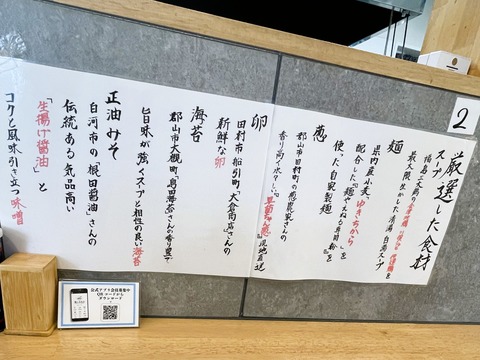 2
厳選した食材
スープ
最大限生かした清湯・白湯スープ
麺
県内産小麦、ゆきちから
配合した「麺やえもん専用粉」を
使った自家製麺
葱
郡山市田村町の葱農家さんの
香り高く水々しい
産地直送
卵
田村市船引町「大倉商店」さんの
新鮮な卵
海苔
旨味が強くスープと相性の良い海苔
正油みそ
白河市の「根田醤油」さんの
伝統ある気品高い
「生揚げ醤油」と
コクと風味引き立つ味噌
公式アプリ会員募集中
QRコードから
ダウンロード